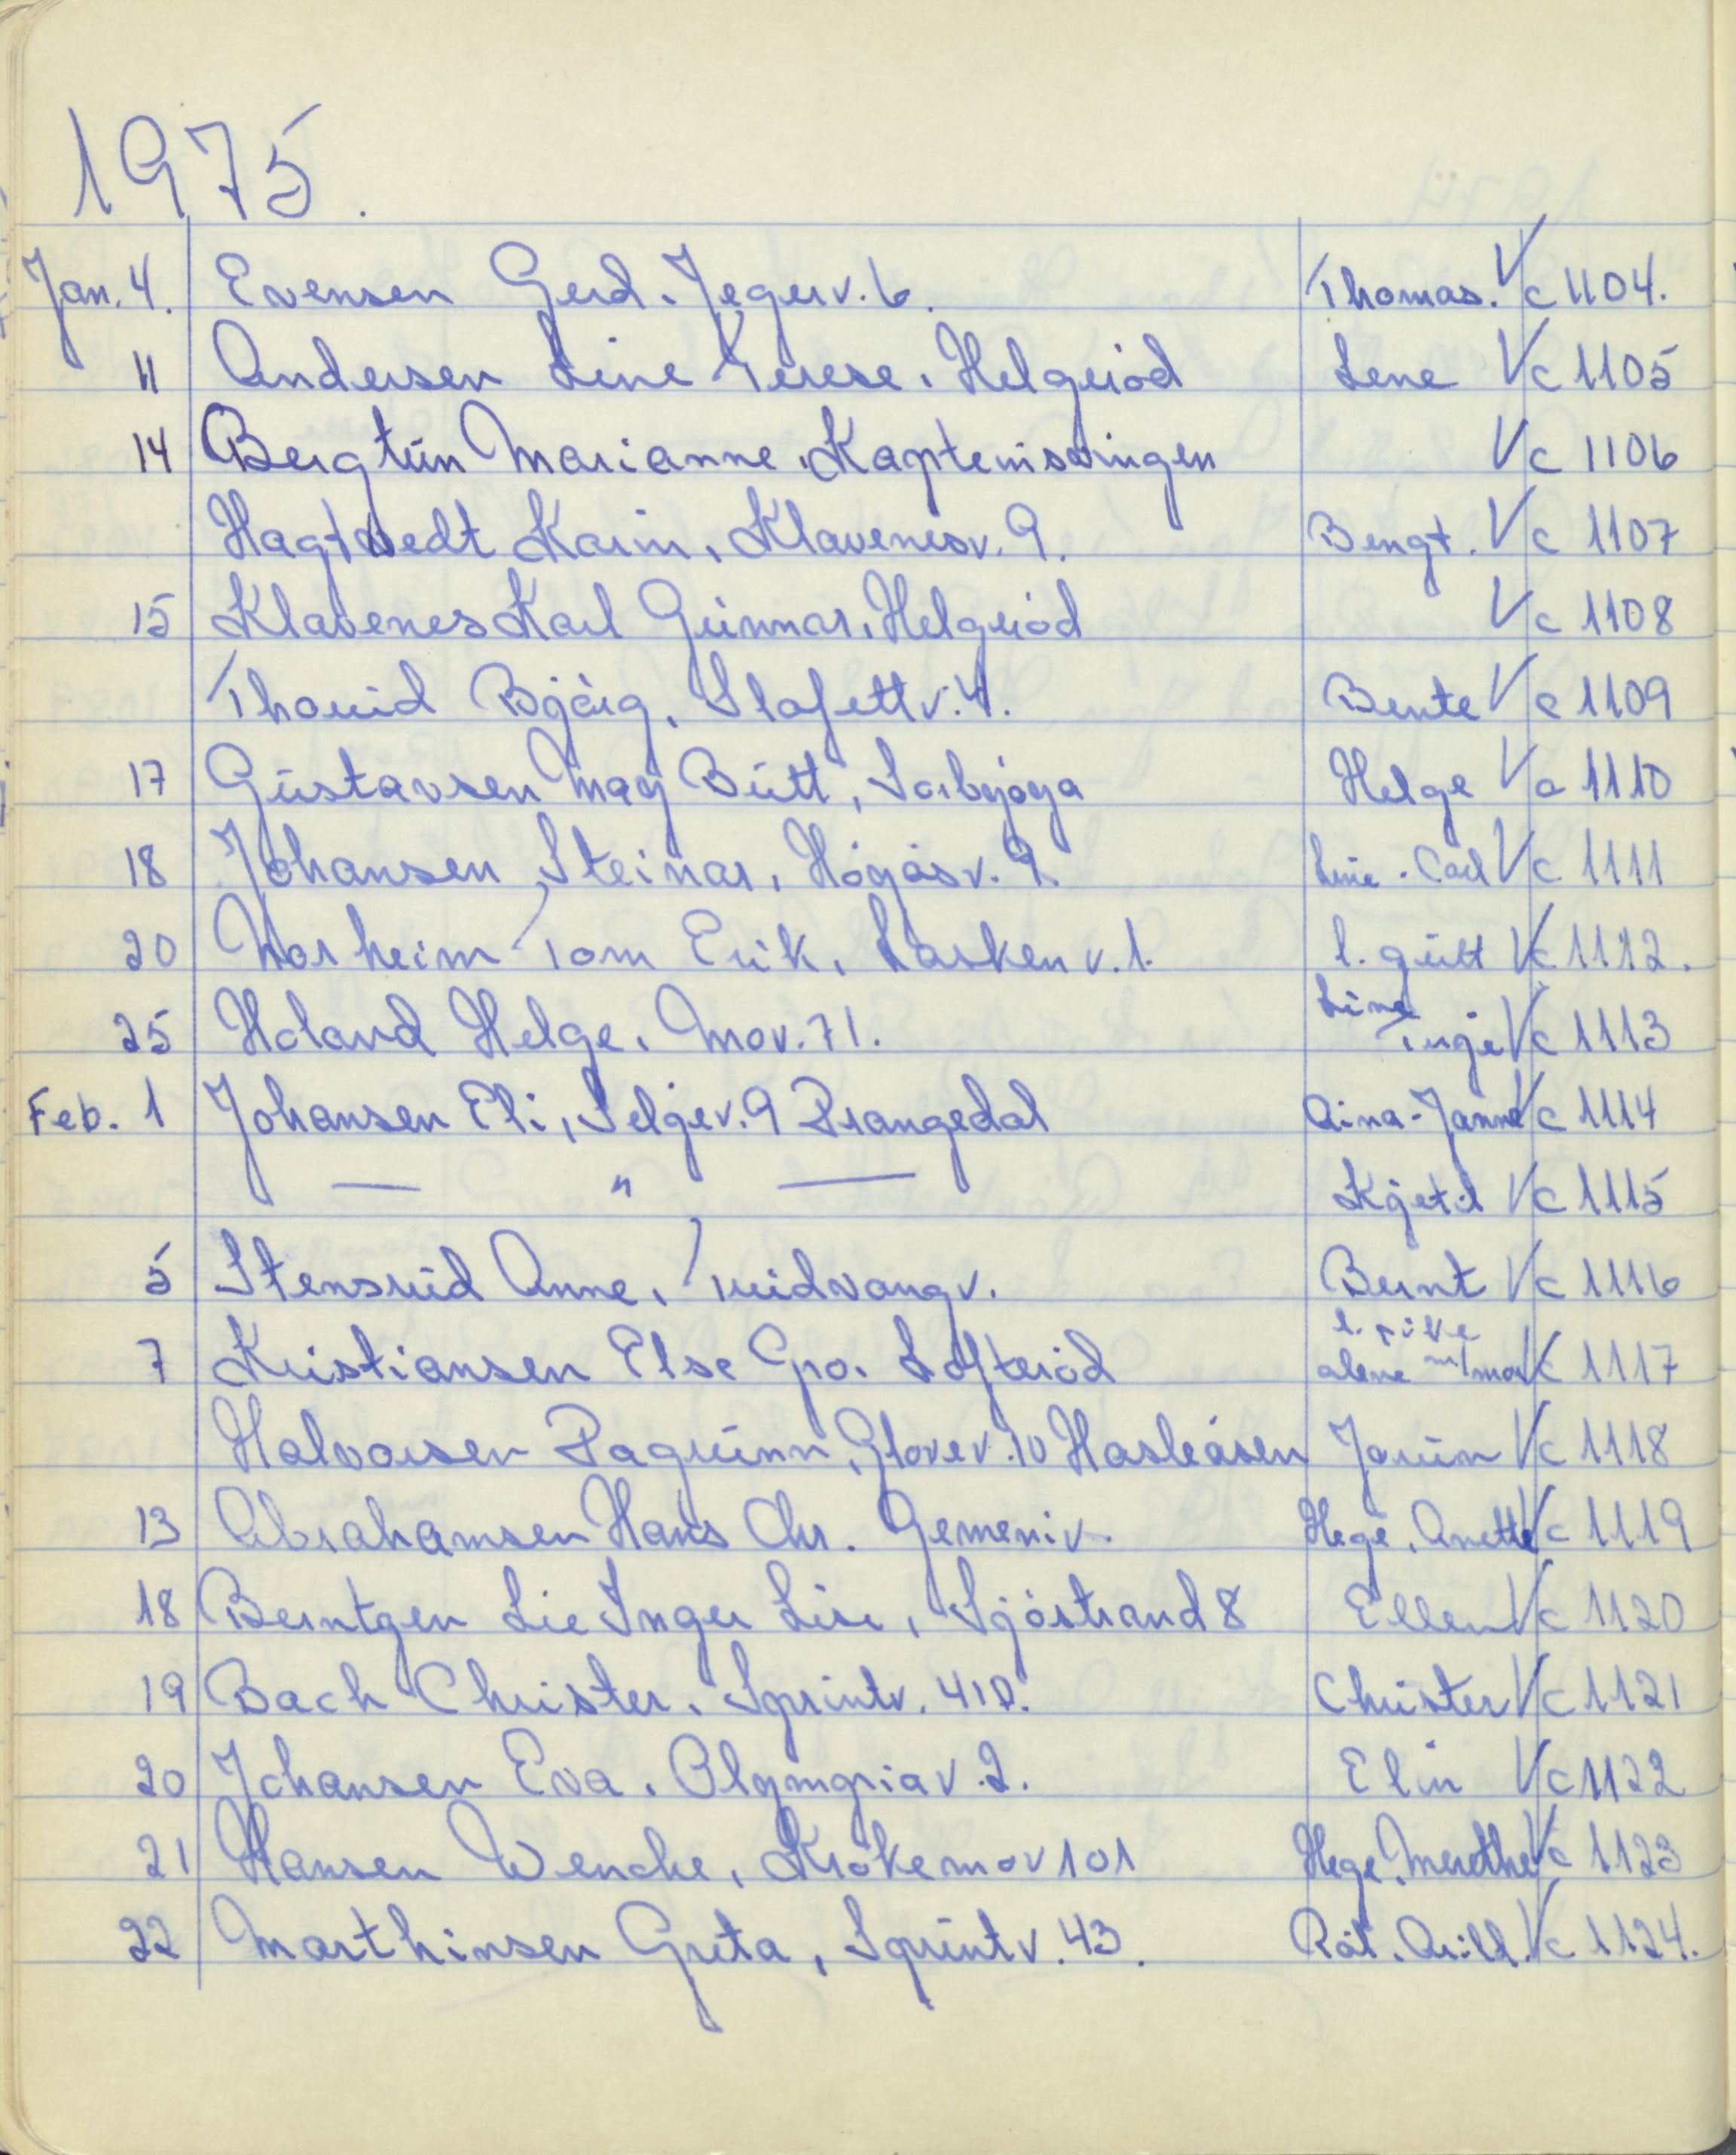 1975.
Jan. 4. Evensen Gerd. Jegerv. 6. Thomas. V c 1104.
11 Andersen Line Terese, Helgeród Lene V c 1105
14 Bergtún Marianne, Kapteinsvingen V c 1106
Hagtvedt Karin, Klavenesv. 9. Bengt. V c 1107
15 Klavenes Karl Gúnnar, Helgeród V c 1108
Thorrid Bjórg, Stafettv. 4. Bente V c 1109
17 Gústavsen May Britt, Sórbyóya Helge V c 1110
18 Johansen Steinar, Hógásv. 9. Line - Carl V c 1111
20 Norheim Tom Erik, Larken v. 1. l. gútt V c 1112.
25 Holand Helge, Mov. 71. Line Terje V c 1113
Feb. 1 Johansen Eli, Seljev. 9 Drangedal Aina-Janne V c 1114
— " — Kjetil V c 1115
5 Stensrúd Anne, Trúdvangv. Bernt V c 1116
7 Kristiansen Else Gro. Lofteród l. pike alene m/mor V c 1117
Halvorsen Dagrúnn, Glovev. 10 Hasleåsen Jorún V c 1118
13 Abrahamsen Hans Chr. Gemeniv. Hege, Anette V c 1119
18 Berntzen Lie Inger Lise, Sjóstrand 8 Ellen V c 1120
19 Bach Christer, Sprintv. 41D. Christer V c 1121
20 Johansen Eva, Olympiav. 2. Elin V c 1122
21 Hansen Wenche, Krókemov 101 Hege, Merethe V c 1123
22 Marthinsen Greta, Sprintv. 43. Arild. V c 1124.